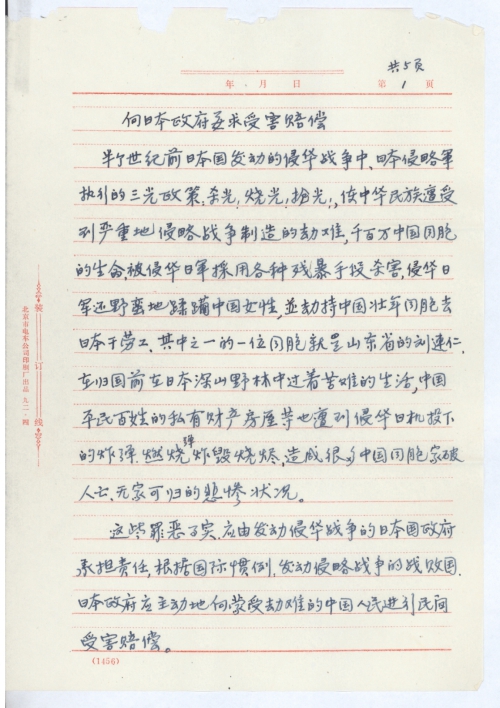 共5页
年 月 日 第 1 页
向日本政府要求受害赔偿
半个世纪前日本国发动的侵华战争中,日本侵略军
执行的三光政策,杀光,烧光,抢光,,使中华民族遭受
到严重地侵略战争制造的劫难,千百万中国同胞
的生命,被侵华日军採用各种残暴手段杀害,侵华日
军还野蛮地蹂躏中国女性,並劫持中国壮年同胞去
日本干劳工,其中之一的一位同胞就是山东省的刘连仁,
在归国前在日本深山野林中过着苦难的生活,中国
平民百姓的私有财产房屋等也遭到侵华日机投下
的炸弹.燃烧弹炸毁烧烬,造成很多中国同胞家破
人亡,无家可归的悲惨状况。
这些罪恶事实,应由发动侵华战争的日本国政府
承担责任,根据国际惯例,发动侵略战争的战败国.
日本政府应主动地向蒙受劫难的中国人民进行民间
受害赔偿。
(1456)
装订线
北京市电车公司印刷厂出品 九二·四